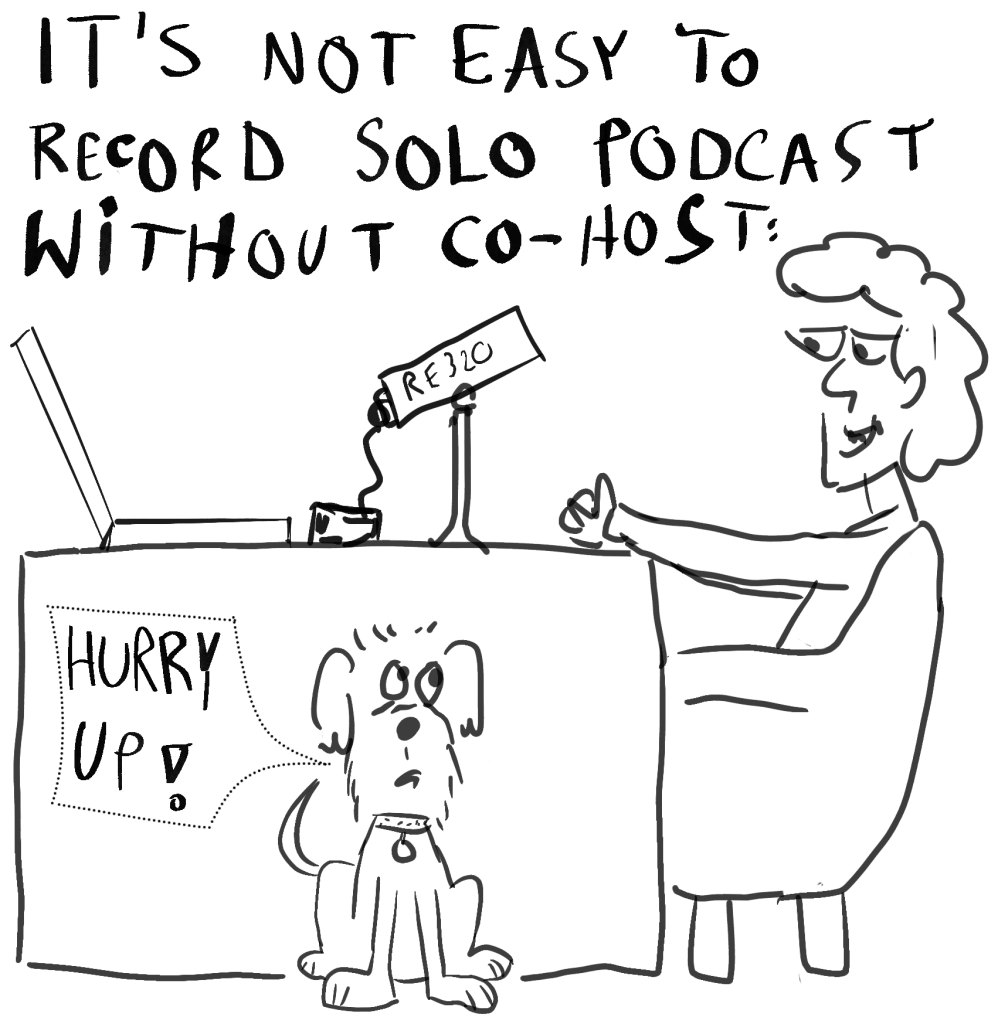 IT'S NOT EASY TO
RECORD SOLO PODCAST
WiTHOUT CO-HOST:
RE320
HURRY
UP!